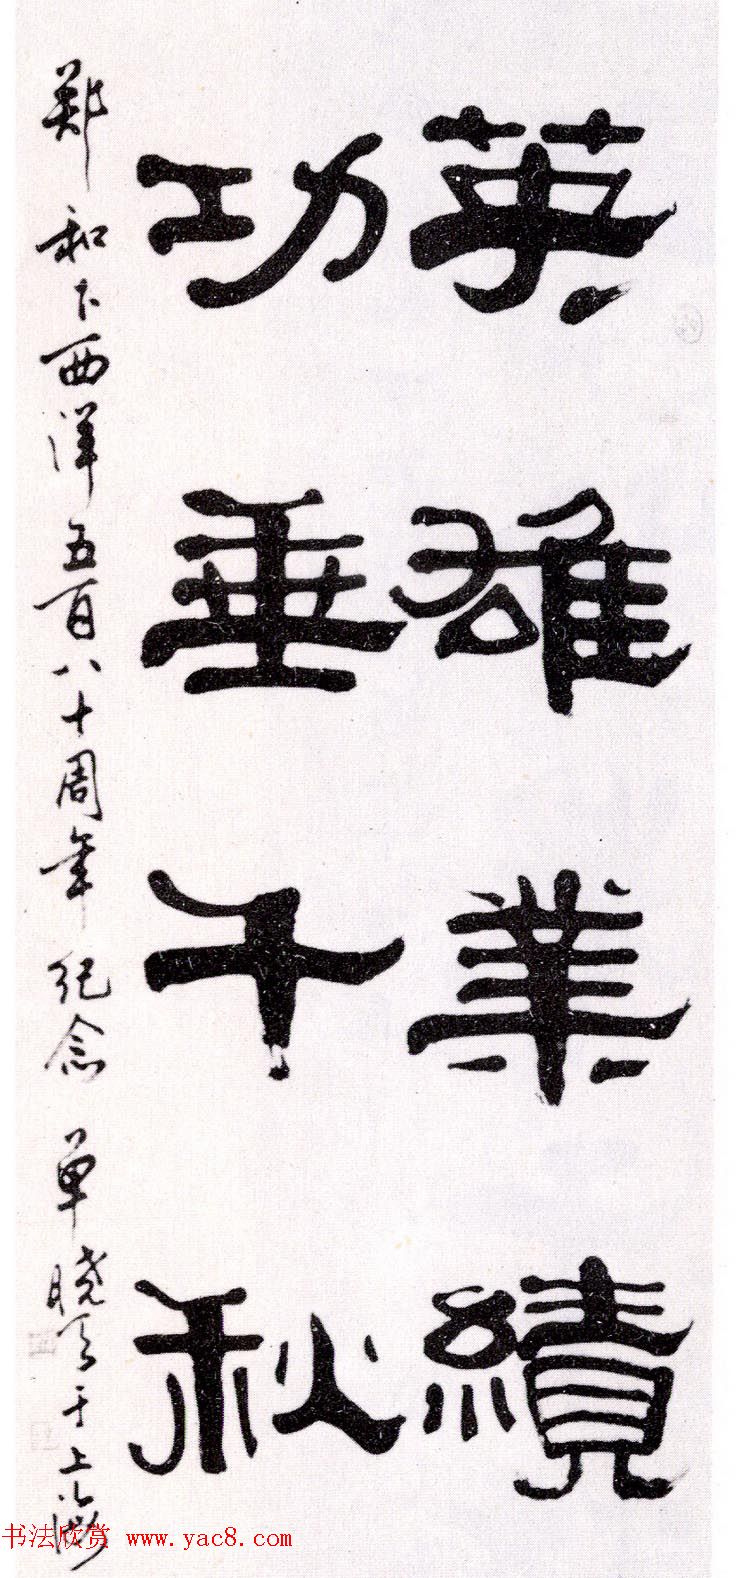 英雄業績
功垂千秋
郑和下西洋五百八十周年纪念 单晓天于上海
书法欣赏 www.yac8.com